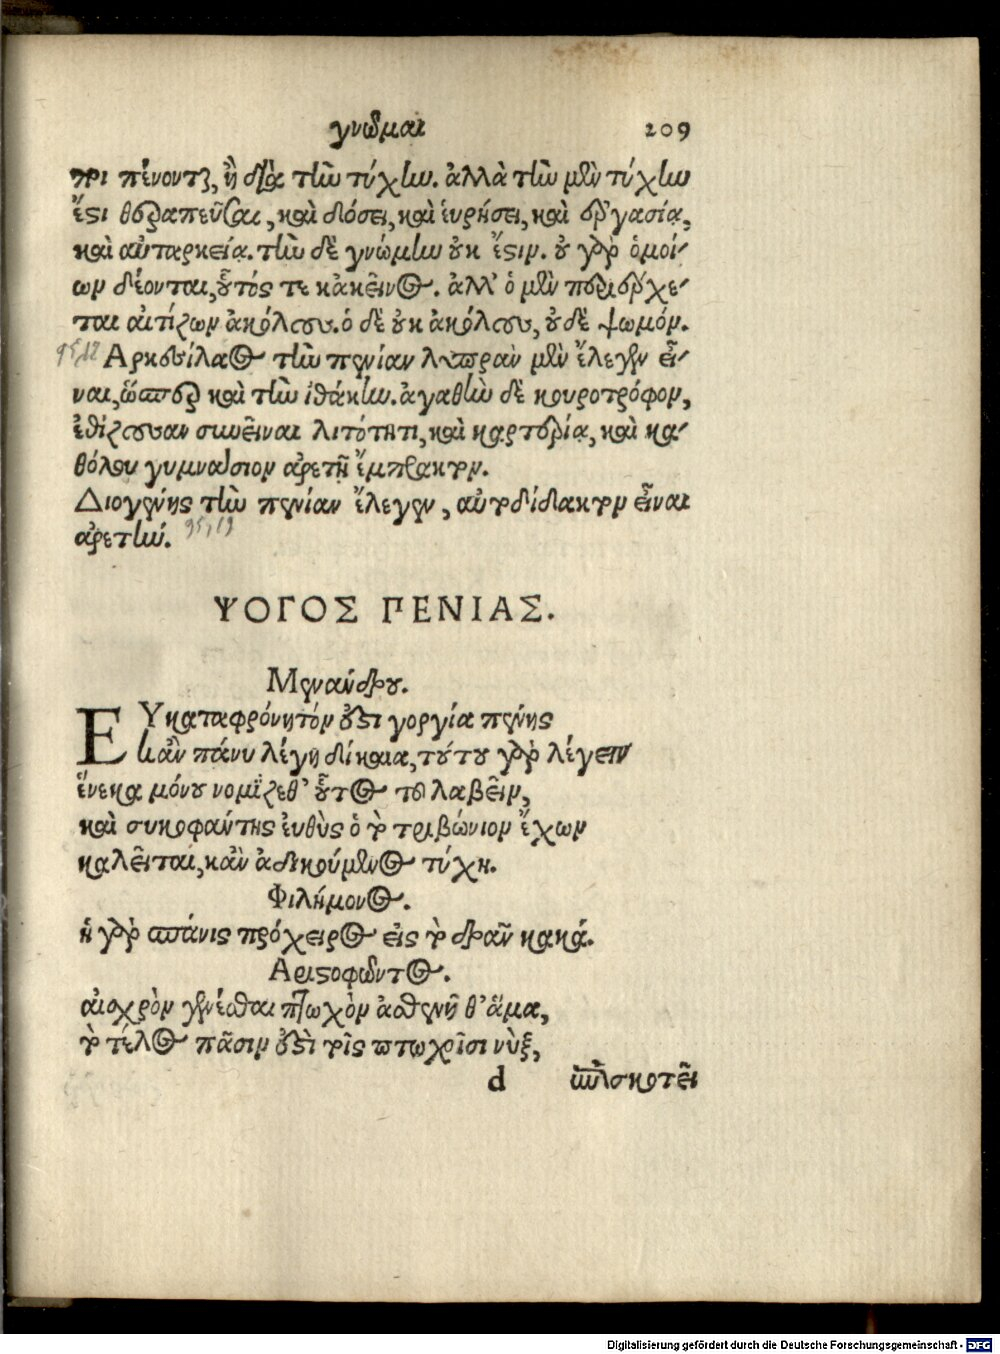 γνῶμαι 209
τρι πένονται, ἢ διὰ τὴν τύχην. ἀλλὰ τὴν μὲν τύχην
ἔστι θεραπεῦσαι, καὶ δόσει, καὶ ἑυρήσει, καὶ ἐργασίᾳ,
καὶ αὐταρκείᾳ. τὴν δὲ γνώμην οὐκ ἔστιν. οὐ γὰρ ὁμοί-
ων δέονται, οὗτός τε κἀκεῖνος. ἀλλ' ὁ μὲν περιέρχε-
ται αἰτίζων ἀκόλους. ὁ δὲ οὐκ ἀκόλους, οὐδὲ ψωμόν.
95,12 Ἀρκεσίλαος τὴν πενίαν λυπρὰν μὲν ἔλεγεν εἶ-
ναι, ὥσπερ καὶ τὴν ἰθάκην. ἀγαθὴν δὲ κουροτρόφον,
ἐθίζουσαν συνεῖναι λιτότητι, καὶ καρτερίᾳ, καὶ κα-
θόλου γυμνάσιον ἀρετῆς ἔμπρακτον.
Διογένης τὴν πενίαν ἔλεγεν, αὐτοδίδακτον εἶναι
ἀρετήν. 95,19
ΨΟΓΟΣ ΠΕΝΙΑΣ.
Μενάνδρου.
ΕΥκαταφρόνητόν ἐστι γοργία πένης
κἂν πάνυ λέγῃ δίκαια, τούτου γὰρ λέγειν
ἕνεκα μόνου νομίζεθ' οὗτος τοῦ λαβεῖν,
καὶ συκοφάντης ἐυθὺς ὁ τὸ τριβώνιον ἔχων
καλεῖται, κἂν ἀδικούμενος τύχη.
Φιλήμονος.
ἡ γὰρ σπάνις πρόχειρος εἰς τὸ δρᾶν κακά.
Ἀριστοφῶντος.
αἰσχρὸν γενέσθαι πτωχὸν ἀσθενῆ θ' ἅμα,
τὸ τέλος πᾶσιν ἐστὶ τοῖς πτωχοῖσι νὺξ,
d ἐπισκοτεῖ
Digitalisierung gefördert durch die Deutsche Forschungsgemeinschaft - DFG